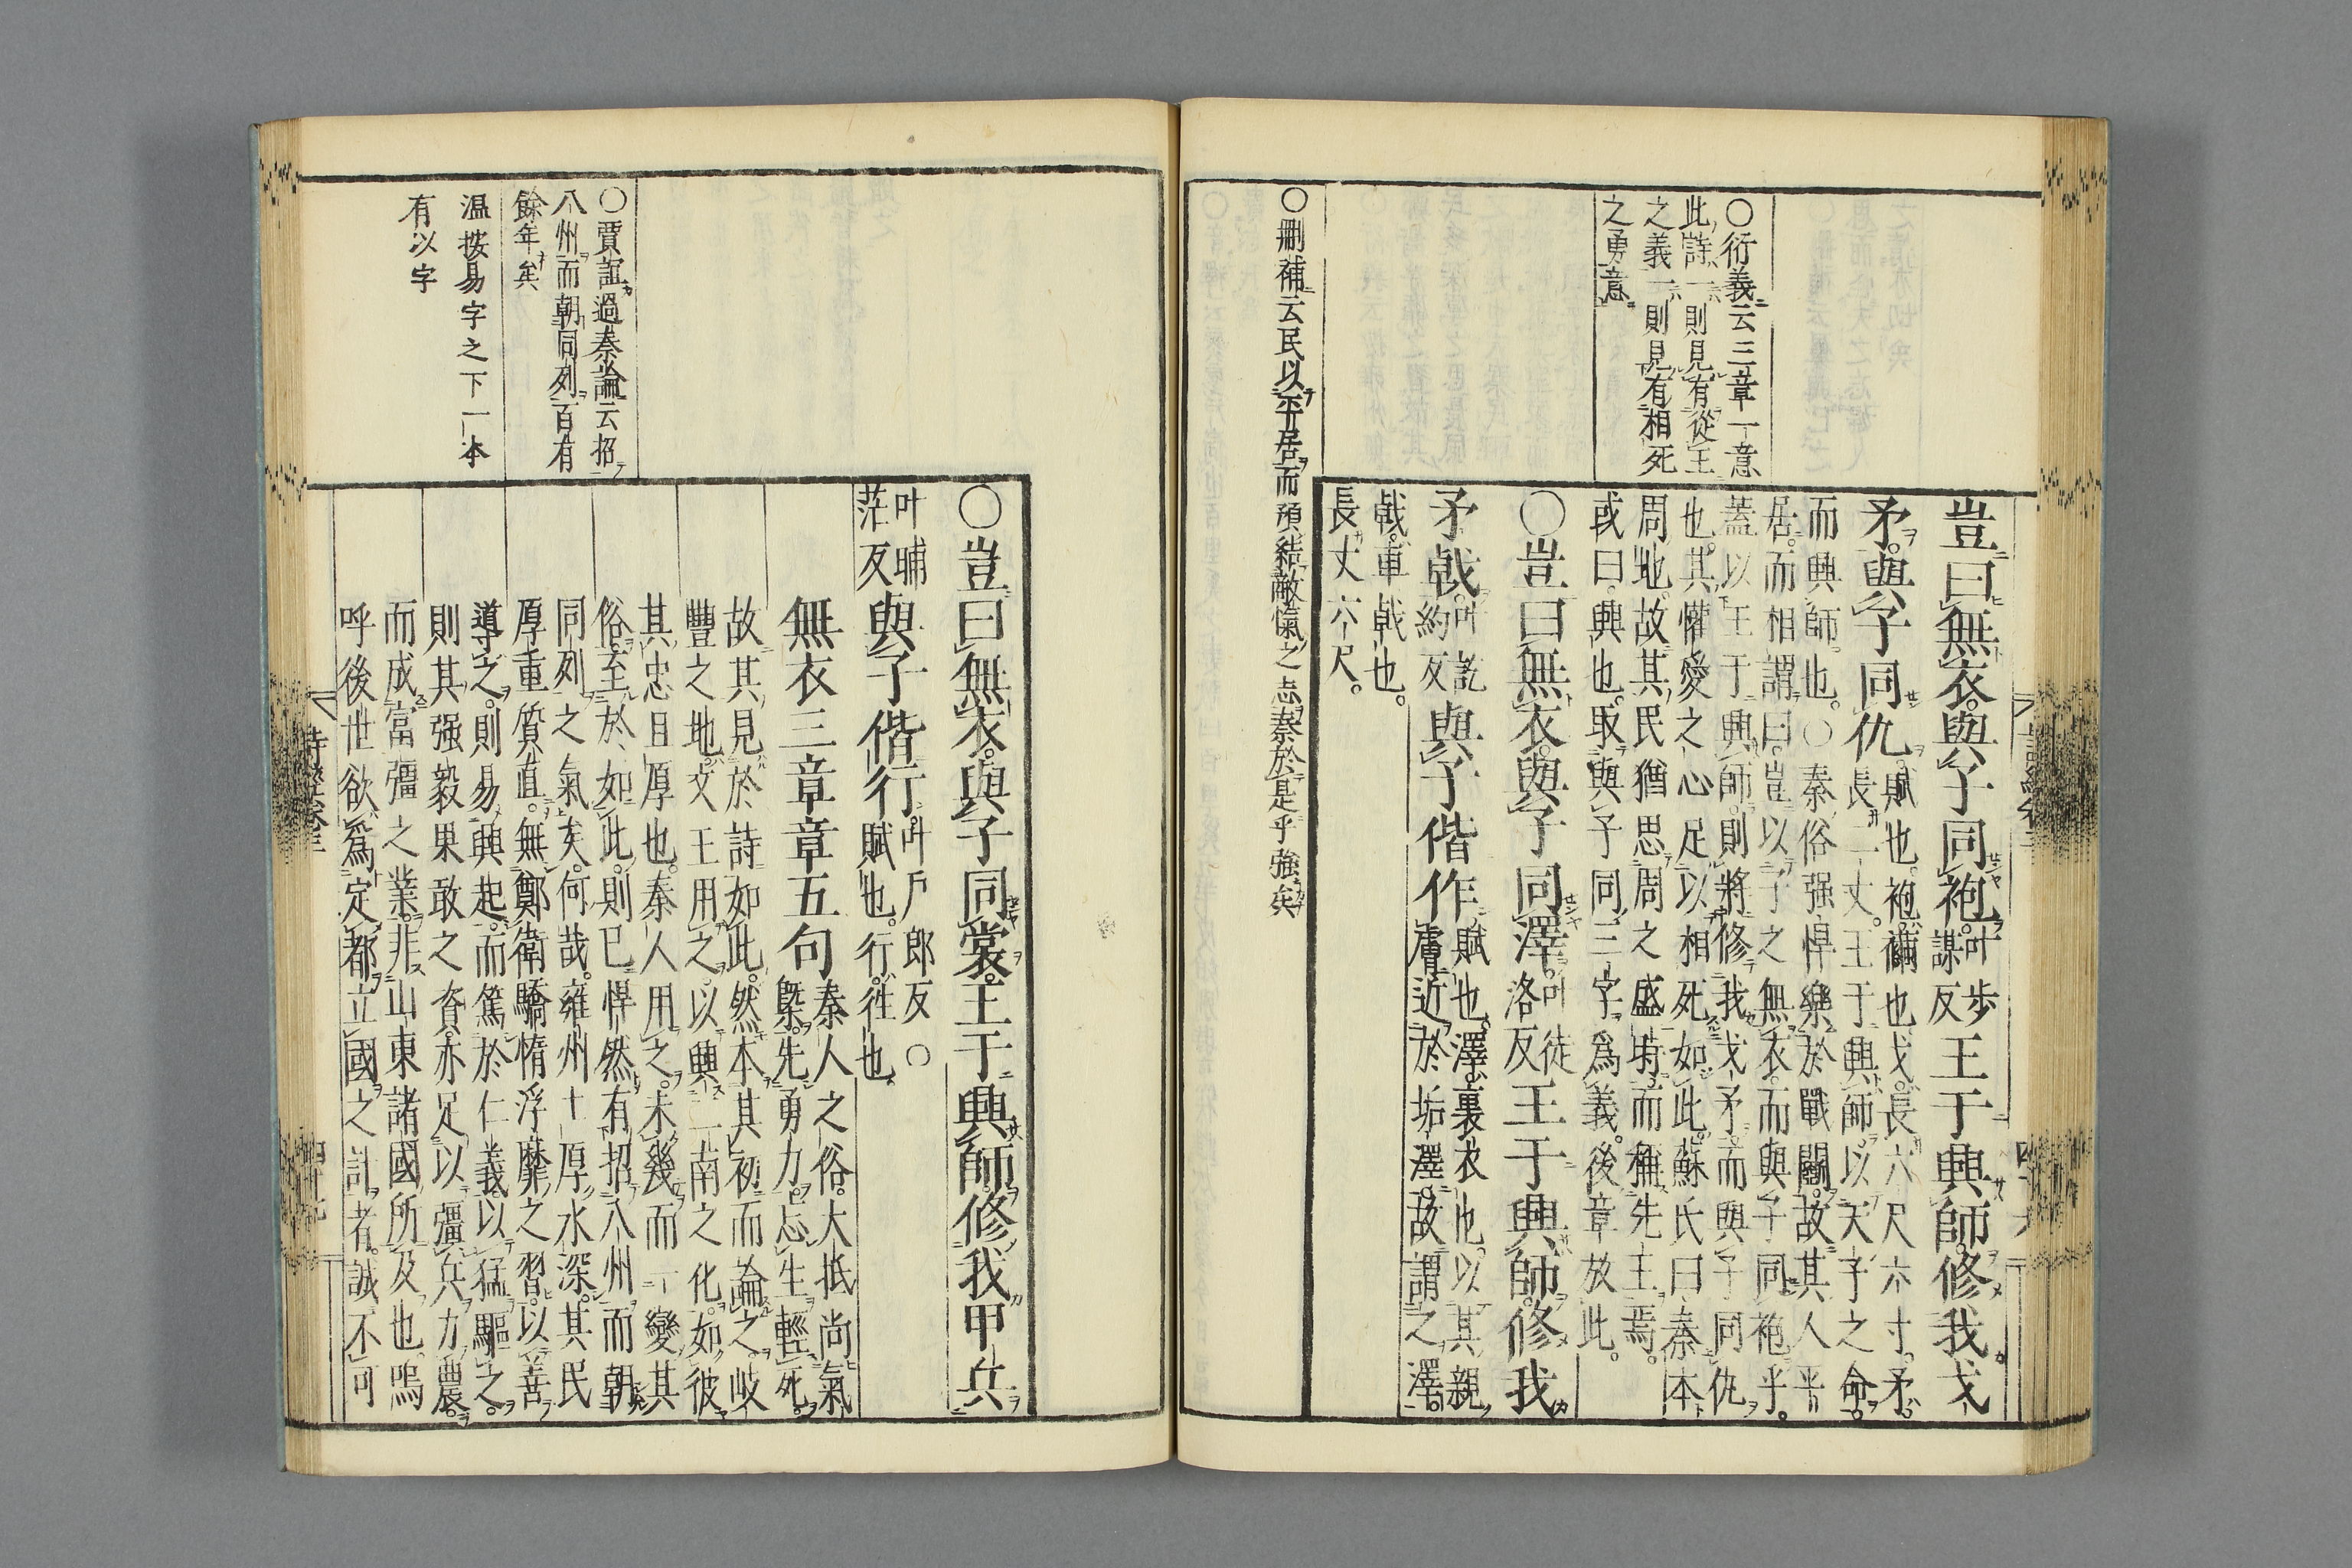 豈曰無衣與子同袍叶步謀反王于興師修我戈
矛與子同仇賦也袍襺也戈長六尺六寸矛長二丈王于興師以天子之命
而興師也○秦俗强悍樂於戰鬭故其人平
居而相謂曰豈以子之無衣而與子同袍乎
蓋以王于興師則將修我戈矛而與子同仇
也其懽愛之心足以相死如此蘇氏曰秦本
周地故其民猶思周之盛時而稱先王焉
或曰興也取與子同三字爲義後章放此
○豈曰無衣與子同澤叶徒洛反王于興師修我
矛戟叶訖約反與子偕作賦也澤裏衣也以其親膚近於垢澤故謂之澤
戟車戟也
長丈六尺
○衍義云三章一意
此詩一則見有從王
之義一則見有相死
之勇意
○刪補云民以平居而預結敵愾之志秦於是乎強矣
○豈曰無衣與子同裳王于興師修我甲兵
叶晡茫反與子偕行叶戶郎反○賦也行往也
無衣三章章五句秦人之俗大抵尚氣槩先勇力忘生輕死
故其見於詩如此然本其初而論之岐
豐之地文王用之以興二南之化如彼
其忠且厚也秦人用之未幾而一變其
俗至於如此則已悍然有招八州而朝
同列之氣矣何哉雍州土厚水深其民
厚重質直無鄭衛驕惰浮靡之習以善
導之則易興起而篤於仁義以猛驅之
則其强毅果敢之資亦足以彊兵力農
而成富彊之業非山東諸國所及也嗚
呼後世欲爲定都立國之計者誠不可
○賈誼過秦論云招
八州而朝同列百有
餘年矣
温按易字之下一本
有以字